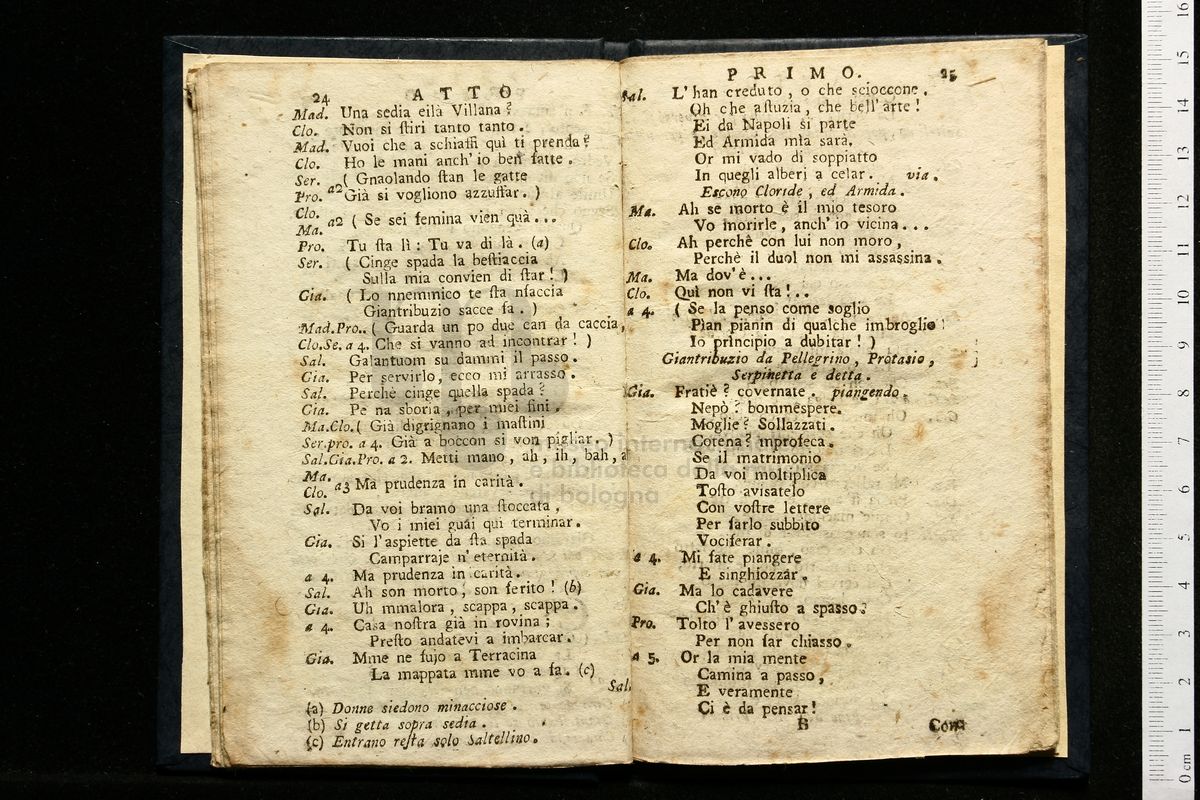 24 ATTO
Mad. Una sedia eilà Villana?
Clo. Non si stiri tanto tanto.
Mad. Vuoi che a schiaffi quì ti prenda?
Clo. Ho le mani anch' io ben fatte.
Ser. ( Gnaolando stan le gatte
Pro. a2 Già si vogliono azzuffar. )
Clo.
Ma. a2 ( Se sei femina vien quà...
Pro. Tu sta lì: Tu va di là. (a)
Ser. ( Cinge spada la bestiaccia
Sulla mia convien di star! )
Gia. ( Lo nnemmico te sta nfaccia
Giantribuzio sacce fa. )
Mad.Pro. ( Guarda un po due can da caccia,
Clo.Se. a 4. Che si vanno ad incontrar! )
Sal. Galantuom su dammi il passo.
Gia. Per servirlo, ecco mi arrasso.
Sal. Perchè cinge quella spada?
Gia. Pe na sboria, per miei fini.
Ma.Clo. ( Già digrignano i mastini
Ser.pro. a 4. Già a boccon si von pigliar. )
Sal.Gia.Pro. a 2. Metti mano, ah, ih, bah, a
Ma.
Clo. a3 Ma prudenza in carità.
Sal. Da voi bramo una stoccata,
Vo i miei guai qui terminar.
Gia. Si l'aspiette da sta spada
Camparraje n' eternità.
a 4. Ma prudenza in carità.
Sal. Ah son morto; son ferito! (b)
Gia. Uh mmalora, scappa, scappa.
a 4. Casa nostra già in rovina;
Presto andatevi a imbarcar.
Gia. Mme ne fujo a Terracina
La mappata mme vo a fa. (c)
Sal.
(a) Donne siedono minacciose.
(b) Si getta sopra sedia.
(c) Entrano resta solo Saltellino.
PRIMO. 25
Sal. L' han creduto, o che scioccone.
Oh che astuzia, che bell' arte!
Ei da Napoli si parte
Ed Armida mia sarà.
Or mi vado di soppiatto
In quegli alberi a celar. via.
Escono Cloride, ed Armida.
Ma. Ah se morto è il mio tesoro
Vo morirle, anch' io vicina...
Clo. Ah perchè con lui non moro,
Perchè il duol non mi assassina.
Ma. Ma dov'è...
Clo. Quì non vi sta!..
a 4. ( Se la penso come soglio
Pian pianin di qualche imbroglio
Io principio a dubitar! )
Giantribuzio da Pellegrino, Protasio,
Serpinetta e detta.
Gia. Fratiè? covernate. piangendo.
Nepò? bommespere.
Moglie? Sollazzati.
Cotena? mprofeca.
Se il matrimonio
Da voi moltiplica
Tosto avisatelo
Con vostre lettere
Per farlo subbito
Vociferar.
a 4. Mi fate piangere
E singhiozzar.
Gia. Ma lo cadavere
Ch' è ghiusto a spasso?
Pro. Tolto l' avessero
Per non far chiasso.
a 5. Or la mia mente
Camina a passo,
E veramente
Ci è da pensar!
B Com